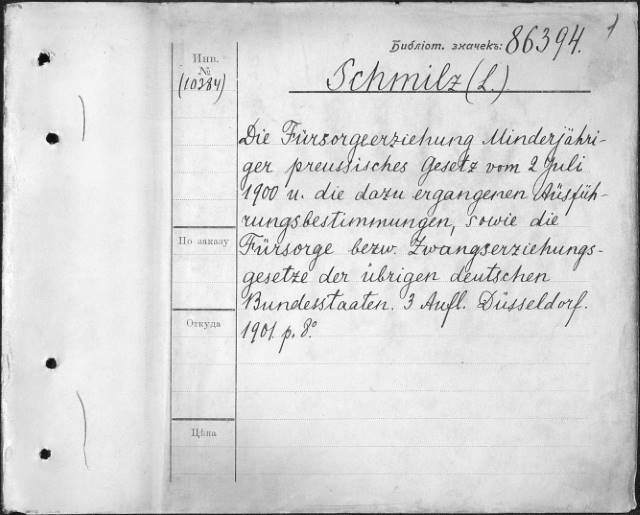 Библіот. значекъ: 86394.
Инв.
№
(10384)
Schmilz (L.)
Die Fürsorgeerziehung Minderjähri-
ger preussisches Gesetz vom 2 Juli
1900 u. die dazu ergangenen Aüsfüh-
rungsbestimmungen, sowie die
Fürsorge bezw. Zwangserziehungs-
gesetze der übrigen deutschen
Bundesstaaten. 3 Aufl. Düsseldorf.
1901. p. 8.°
По заказу
Откуда
Цѣна